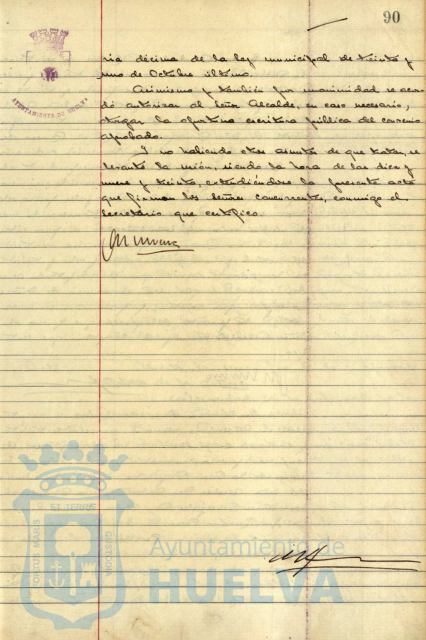 90
AYUNTAMIENTO DE HUELVA
ria décima de la ley municipal de treinta y
uno de Octubre último.
Asimismo y también por unanimidad se acor-
dó autorizar al Señor Alcalde, en caso necesario,
otorgar la oportuna escritura pública del convenio
aprobado.
Y no habiendo otros asuntos de que tratar, se
levantó la sesión, siendo la hora de las diez y
nueve y treinta, extendiéndose la presente acta
que firman los señores concurrentes, conmigo el
secretario que certifico.
PORTUS MARIS
ET TERRE
CUSTODIA
Ayuntamiento de
HUELVA